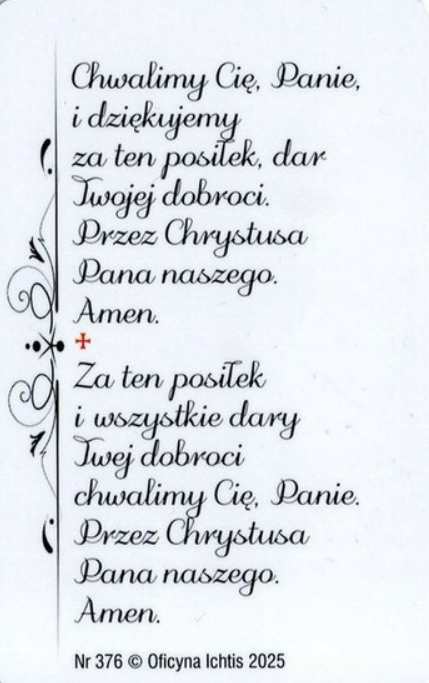 Chwalimy Cię, Panie,
i dziękujemy
za ten posiłek, dar
Twojej dobroci.
Przez Chrystusa
Pana naszego.
Amen.
Za ten posiłek
i wszystkie dary
Twej dobroci
chwalimy Cię, Panie.
Przez Chrystusa
Pana naszego.
Amen.
Nr 376 © Oficyna Ichtis 2025